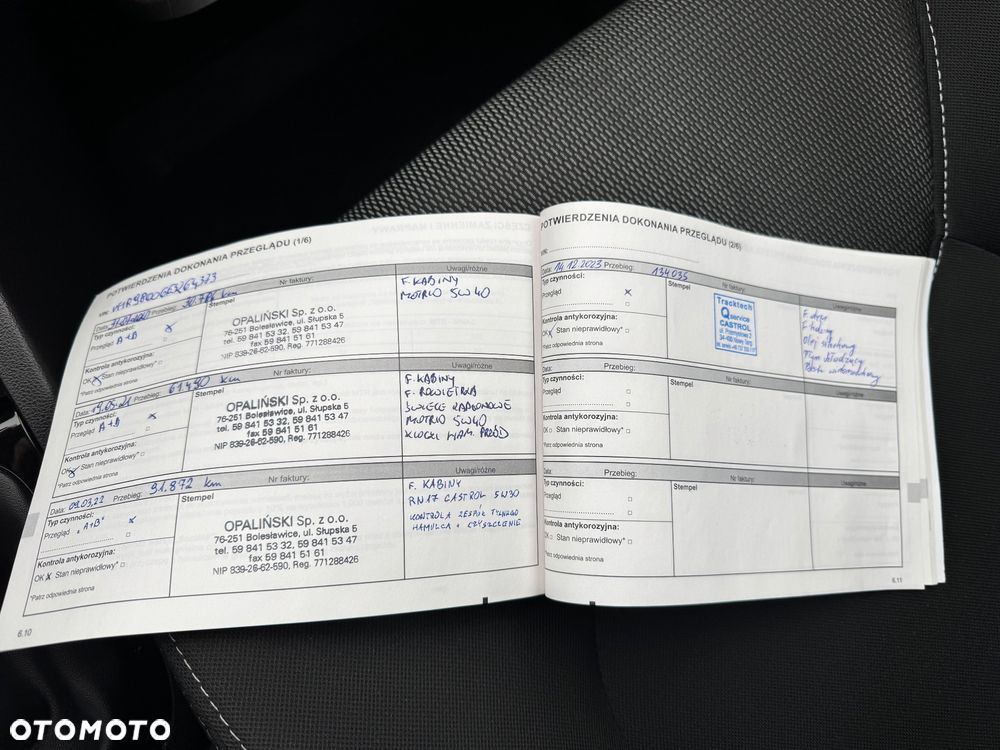 POTWIERDZENIA DOKONANIA PRZEGLĄDU (1/6)
VIN:
Przebieg: km
Nr faktury:
Uwagi/różne
Data:
Typ czynności:
Przegląd A+B
Stempel
OPALIŃSKI Sp. z o.o.
76-251 Bolesławice, ul. Słupska 5
tel. 59 841 53 32, 59 841 53 47
fax 59 841 51 61
NIP 839-26-62-590, Reg. 771288426
F. KABINY
MOTRIO 5W40
Kontrola antykorozyjna:
OK Stan nieprawidłowy*
*Patrz odpowiednia strona
Data: 19.05.21 Przebieg: km
Nr faktury:
Uwagi/różne
Typ czynności:
Przegląd A+B
Stempel
OPALIŃSKI Sp. z o.o.
76-251 Bolesławice, ul. Słupska 5
tel. 59 841 53 32, 59 841 53 47
fax 59 841 51 61
NIP 839-26-62-590, Reg. 771288426
F. KABINY
F. POWIETRZA
ŚWIECE
MOTRIO 5W40
KLOCKI HAM. PRZÓD
Kontrola antykorozyjna:
OK Stan nieprawidłowy*
*Patrz odpowiednia strona
Data: 09.03.22 Przebieg: 91.872 km
Nr faktury:
Uwagi/różne
Typ czynności:
Przegląd "A+B"
Stempel
OPALIŃSKI Sp. z o.o.
76-251 Bolesławice, ul. Słupska 5
tel. 59 841 53 32, 59 841 53 47
fax 59 841 51 61
NIP 839-26-62-590, Reg. 771288426
F. KABINY
RN17 CASTROL 5W30
KONTROLA ZESPÓŁ TYLNEGO
HAMULCA + CZYSZCZENIE
Kontrola antykorozyjna:
OK X Stan nieprawidłowy*
*Patrz odpowiednia strona
6.10
POTWIERDZENIA DOKONANIA PRZEGLĄDU (2/6)
VIN:
Data: 14.12.2023 Przebieg: 134035
Nr faktury:
Uwagi/różne
Typ czynności:
Przegląd
Stempel
Tracktech
Qservice
CASTROL
Olej silnikowy
Kontrola antykorozyjna:
OK Stan nieprawidłowy*
*Patrz odpowiednia strona
Data: Przebieg:
Nr faktury:
Uwagi/różne
Typ czynności:
Przegląd
Stempel
Kontrola antykorozyjna:
OK Stan nieprawidłowy*
*Patrz odpowiednia strona
Data: Przebieg:
Nr faktury:
Uwagi/różne
Typ czynności:
Przegląd
Stempel
Kontrola antykorozyjna:
OK Stan nieprawidłowy*
*Patrz odpowiednia strona
6.11
OTOMOTO